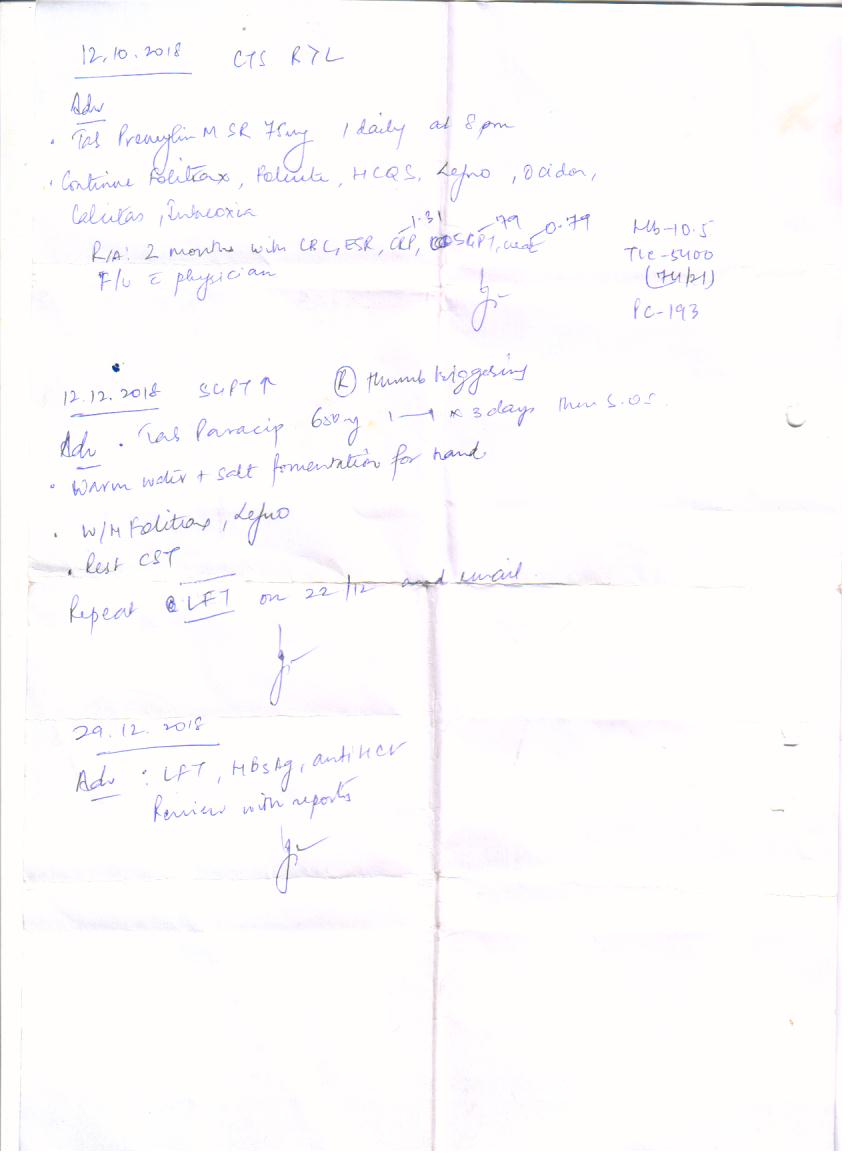 12.10.2018 CTS R>L
Adv
. Tab Premylin M SR 75mg 1 daily at 8 pm
. Continue Folitrax, Folvite, HCQS, Lefno,
Calcitas,
R/A: 2 months with CBC, ESR, CRP, SGPT, creat
1.31 79 0.79
F/U c̄ physician
Hb-10.5
TLC-5400
(74/21)
PC-193
12.12.2018 SGPT↑ (R) thumb triggering
Adv . Tab Paracip 650mg 1—1 x 3 days then S.O.S.
. Warm water + salt fomentation for hand
. W/H Folitrax, Lefno
. Rest CST
Repeat LFT on 22/12 and email.
29.12.2018
Adv : LFT, HBsAg, anti HCV
Review with reports